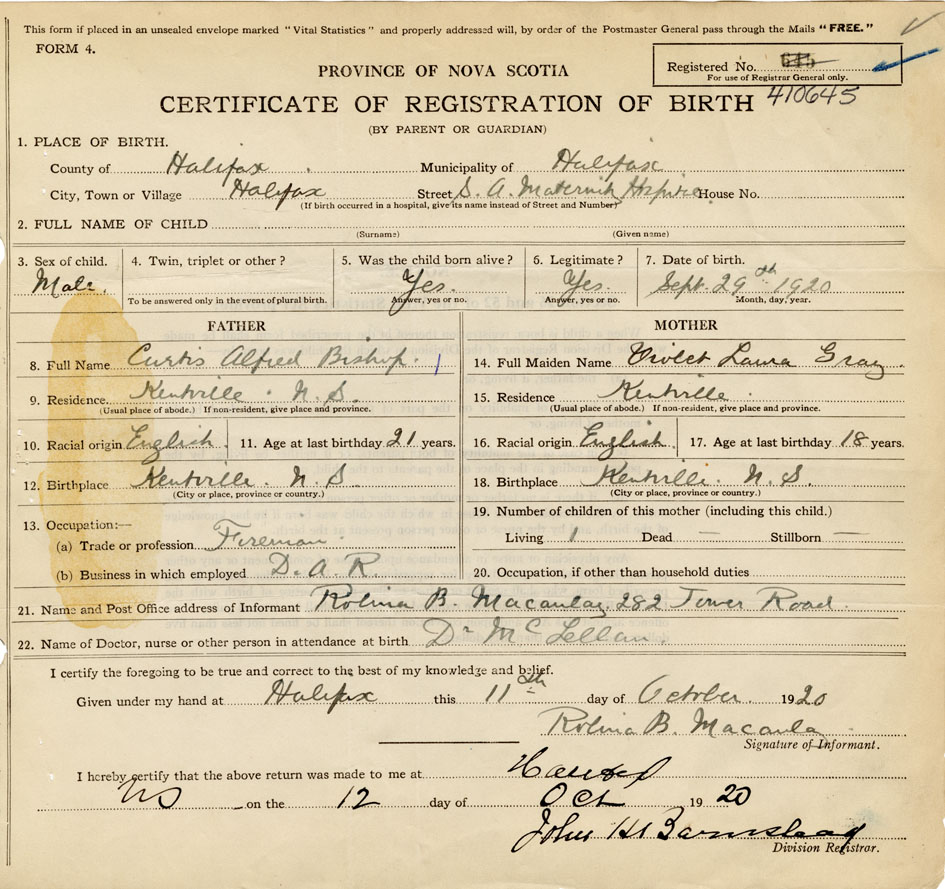 This form if placed in an unsealed envelope marked "Vital Statistics" and properly addressed will, by order of the Postmaster General pass through the Mails "FREE."
FORM 4.
Registered No. 645
For use of Registrar General only.
PROVINCE OF NOVA SCOTIA
CERTIFICATE OF REGISTRATION OF BIRTH 410645
(BY PARENT OR GUARDIAN)
1. PLACE OF BIRTH.
County of Halifax Municipality of Halifax
City, Town or Village Halifax Street S. A. Maternity House No.
(If birth occurred in a hospital, give its name instead of Street and Number)
2. FULL NAME OF CHILD
(Surname) (Given name)
3. Sex of child. 4. Twin, triplet or other? 5. Was the child born alive? 6. Legitimate? 7. Date of birth.
Male. Yes. Yes. Sept. 29th 1920
To be answered only in the event of plural birth. Answer, yes or no. Answer, yes or no. Month, day, year.
FATHER MOTHER
8. Full Name Curtis Alfred Bishop. 14. Full Maiden Name Violet Laura Gray
9. Residence. Kentville. N. S. 15. Residence Kentville.
(Usual place of abode.) If non-resident, give place and province. (Usual place of abode.) If non-resident, give place and province.
10. Racial origin English. 11. Age at last birthday 21 years. 16. Racial origin English. 17. Age at last birthday 18 years.
12. Birthplace Kentville. N. S. 18. Birthplace Kentville. N. S.
(City or place, province or country.) (City or place, province or country.)
13. Occupation:— 19. Number of children of this mother (including this child.)
(a) Trade or profession Fireman. Living 1 Dead — Stillborn —
(b) Business in which employed D. A. R. 20. Occupation, if other than household duties
21. Name and Post Office address of Informant Rolina B. Macaulay. 282 Tower Road.
22. Name of Doctor, nurse or other person in attendance at birth Dr McLellan.
I certify the foregoing to be true and correct to the best of my knowledge and belief.
Given under my hand at Halifax this 11th day of October. 1920
Rolina B. Macaula
Signature of Informant.
I hereby certify that the above return was made to me at
NS on the 12 day of Oct 1920
John H Barnstead
Division Registrar.